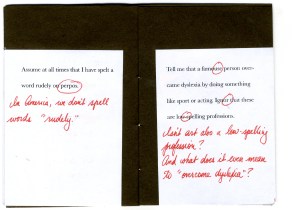 Assume at all times that I have spelt a
word rudely on perpos.
In America, we don't spell
words "rudely."
Tell me that a famouse person over-
came dyslexia by doing something
like sport or acting lignor that these
are low-spelling professions.
Isn't art also a low-spelling
profession?
And what does it even mean
to "overcome dyslexia"?